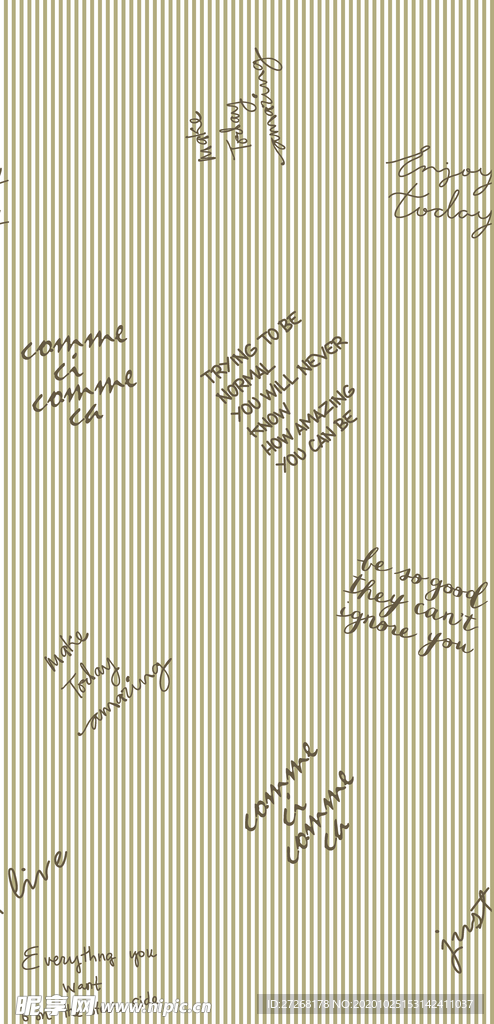 Make
Today
amazing
Enjoy
today
comme
ci
comme
ca
TRYING TO BE
NORMAL
YOU WILL NEVER
KNOW
HOW AMAZING
YOU CAN BE
be so good
they can't
ignore you
Make
Today
amazing
comme
ci
comme
ca
live
just
Everythng you
want
昵享网 www.nipic.cn
ID:27268178 NO:20201025153142411037